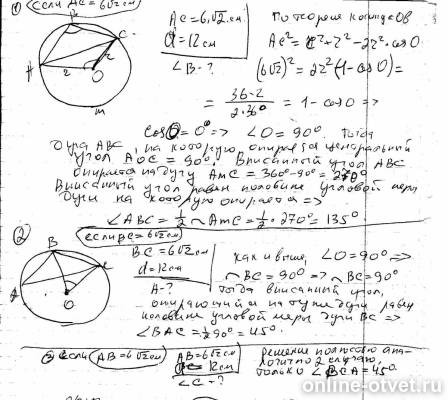 ① Если AC = 6√2 см
B
C
A
2
2
O
m
AC = 6√2 см
d = 12 см
∠B - ?
По теореме косинусов
AC² = r² + r² - 2r² · cos O
(6√2)² = 2r² (1 - cos O) =
= 36·2 / 2·36 = 1 - cos O =>
cos O = 0 => ∠O = 90°. Тогда
дуга ABC, на которую опирается центральный
угол AOC = 90°. Вписанный угол ABC
опирается на дугу AmC = 360° - 90° = 270°
Вписанный угол равен половине угловой меры
дуги на которую опирается =>
∠ABC = 1/2 ◡AmC = 1/2 · 270° = 135°
② Если BC = 6√2 см
B
A
O
BC = 6√2 см
d = 12 см
A - ?
как и выше, ∠O = 90° =>
◡BC = 90° => ◡BC = 90°
тогда вписанный угол,
опирающийся на ту же дугу равен
половине угловой меры дуги BC =>
∠BAC = 1/2 90° = 45°.
Если AB = 6√2 см
AB = 6√2 см
12 см
∠C - ?
Решение полностью ана-
логично 2 случаю,
только ∠BCA = 45°
online-otvet.ru